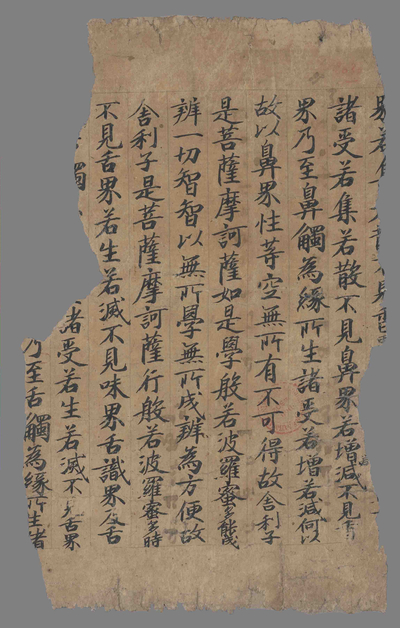 諸受若集若散不見鼻界若增減不見
界乃至鼻觸為緣所生諸受若增若減何以
故以鼻界性等空無所有不可得故舍利子
是菩薩摩訶薩如是學般若波羅蜜多能成
辨一切智智以無所學無所成辨為方便故
舍利子是菩薩摩訶薩行般若波羅蜜多時
不見舌界若生若滅不見味界舌識界及舌
諸受若生若滅不見舌界
乃至舌觸為緣所生者